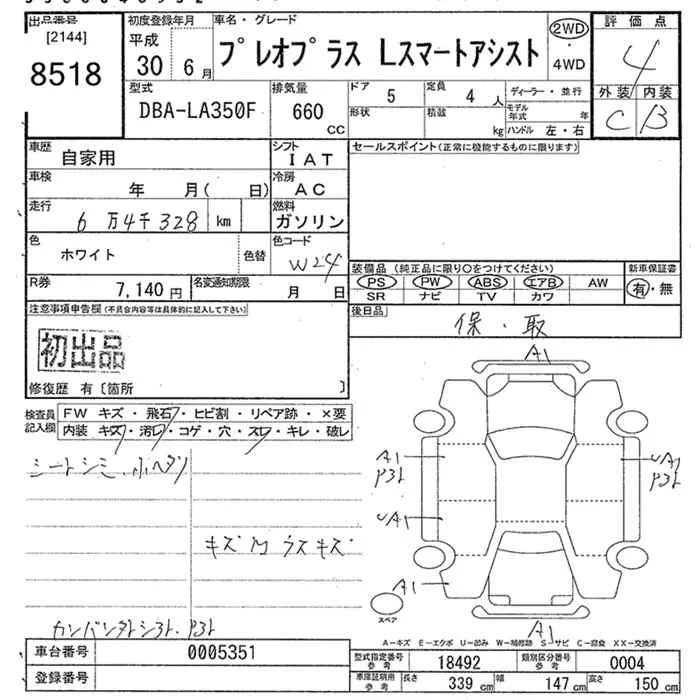 出品番号
[2144]
8518
初度登録年月
平成
30年 6月
車名・グレード
プレオプラス Lスマートアシスト
2WD
・
4WD
評価点
4
外装 内装
C B
型式
DBA-LA350F
排気量
660
CC
ドア 5
定員 4人
形状
積載 kg
ディーラー・並行
モデル年式 年
ハンドル 左・右
車歴
自家用
シフト
IAT
車検
年 月( 日)
冷房
AC
走行
6万4千328 km
燃料
ガソリン
色
ホワイト
色替
色コード
W24
R券
7,140円
名変通知期限
月 日
セールスポイント(正常に機能するものに限ります)
装備品 (純正品に限り○をつけてください)
新車保証書
PS PW ABS エアB AW
SR ナビ TV カワ
有・無
後日品
保・取
注意事項申告欄(不具合内容等は具体的に記入して下さい)
初出品
修復歴 有〔箇所 〕
検査員記入欄
FW キズ・飛石・ヒビ割・リペア跡・×要
内装 キズ・汚レ・コゲ・穴・スレ・キレ・破レ
シートシミ
キズ
カンバン
A1
A1
A1
A1
A1
A1
A1
スペア
A-キズ E-エクボ U-凹み W-補修跡 S-サビ C-腐食 XX-交換済
車台番号
0005351
登録番号
型式指定番号
参考
18492
類別区分番号
参考
0004
車庫証明用
参考
長さ 339 cm
幅 147 cm
高さ 150 cm